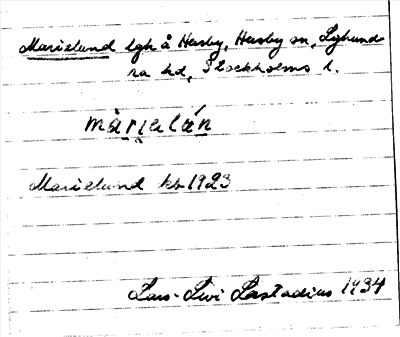 Marielund lgh å Husby, Husby sn, Lyhund
ra hd, Stockholms l.
màrɩelán
Marielund kb 1923
Lars-Levi Læstadius 1934